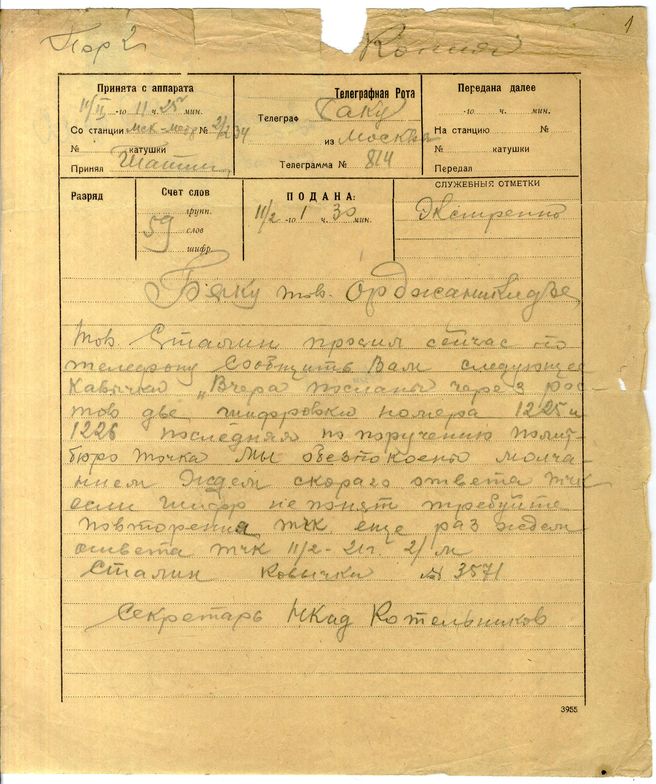 1
Пор 2 Копия
Принята с аппарата
11/II -го 11 ч. 25 мин.
Со станции мск-мадр №
№ катушки
Принял
Телеграфная Рота
Телеграф Баку
из Москва
Телеграмма № 814
Передана далее
-го ч. мин.
На станцию №
№ катушки
Передал
Разряд
Счет слов
групп.
59 слов
шифр.
ПОДАНА:
11/2 -го 1 ч. 30 мин.
СЛУЖЕБНЫЯ ОТМЕТКИ
Экстренно
Баку тов. Орджаникидзе
Тов. Сталин просил сейчас по
телефону сообщить Вам следующее
Кавычки „Вчера посланы через рос-
тов две шифровки номера 1225 и
1226 последняя по поручению полит-
бюро точка Мы обезпокоены молча-
нием Ждем скораго ответа тчк
если шифр не понят требуйте
повторения тчк еще раз ждем
ответа тчк 11/2 - 21г. 2/м
Сталин Ковычки № 3571
Секретарь НКид Котельников
3955